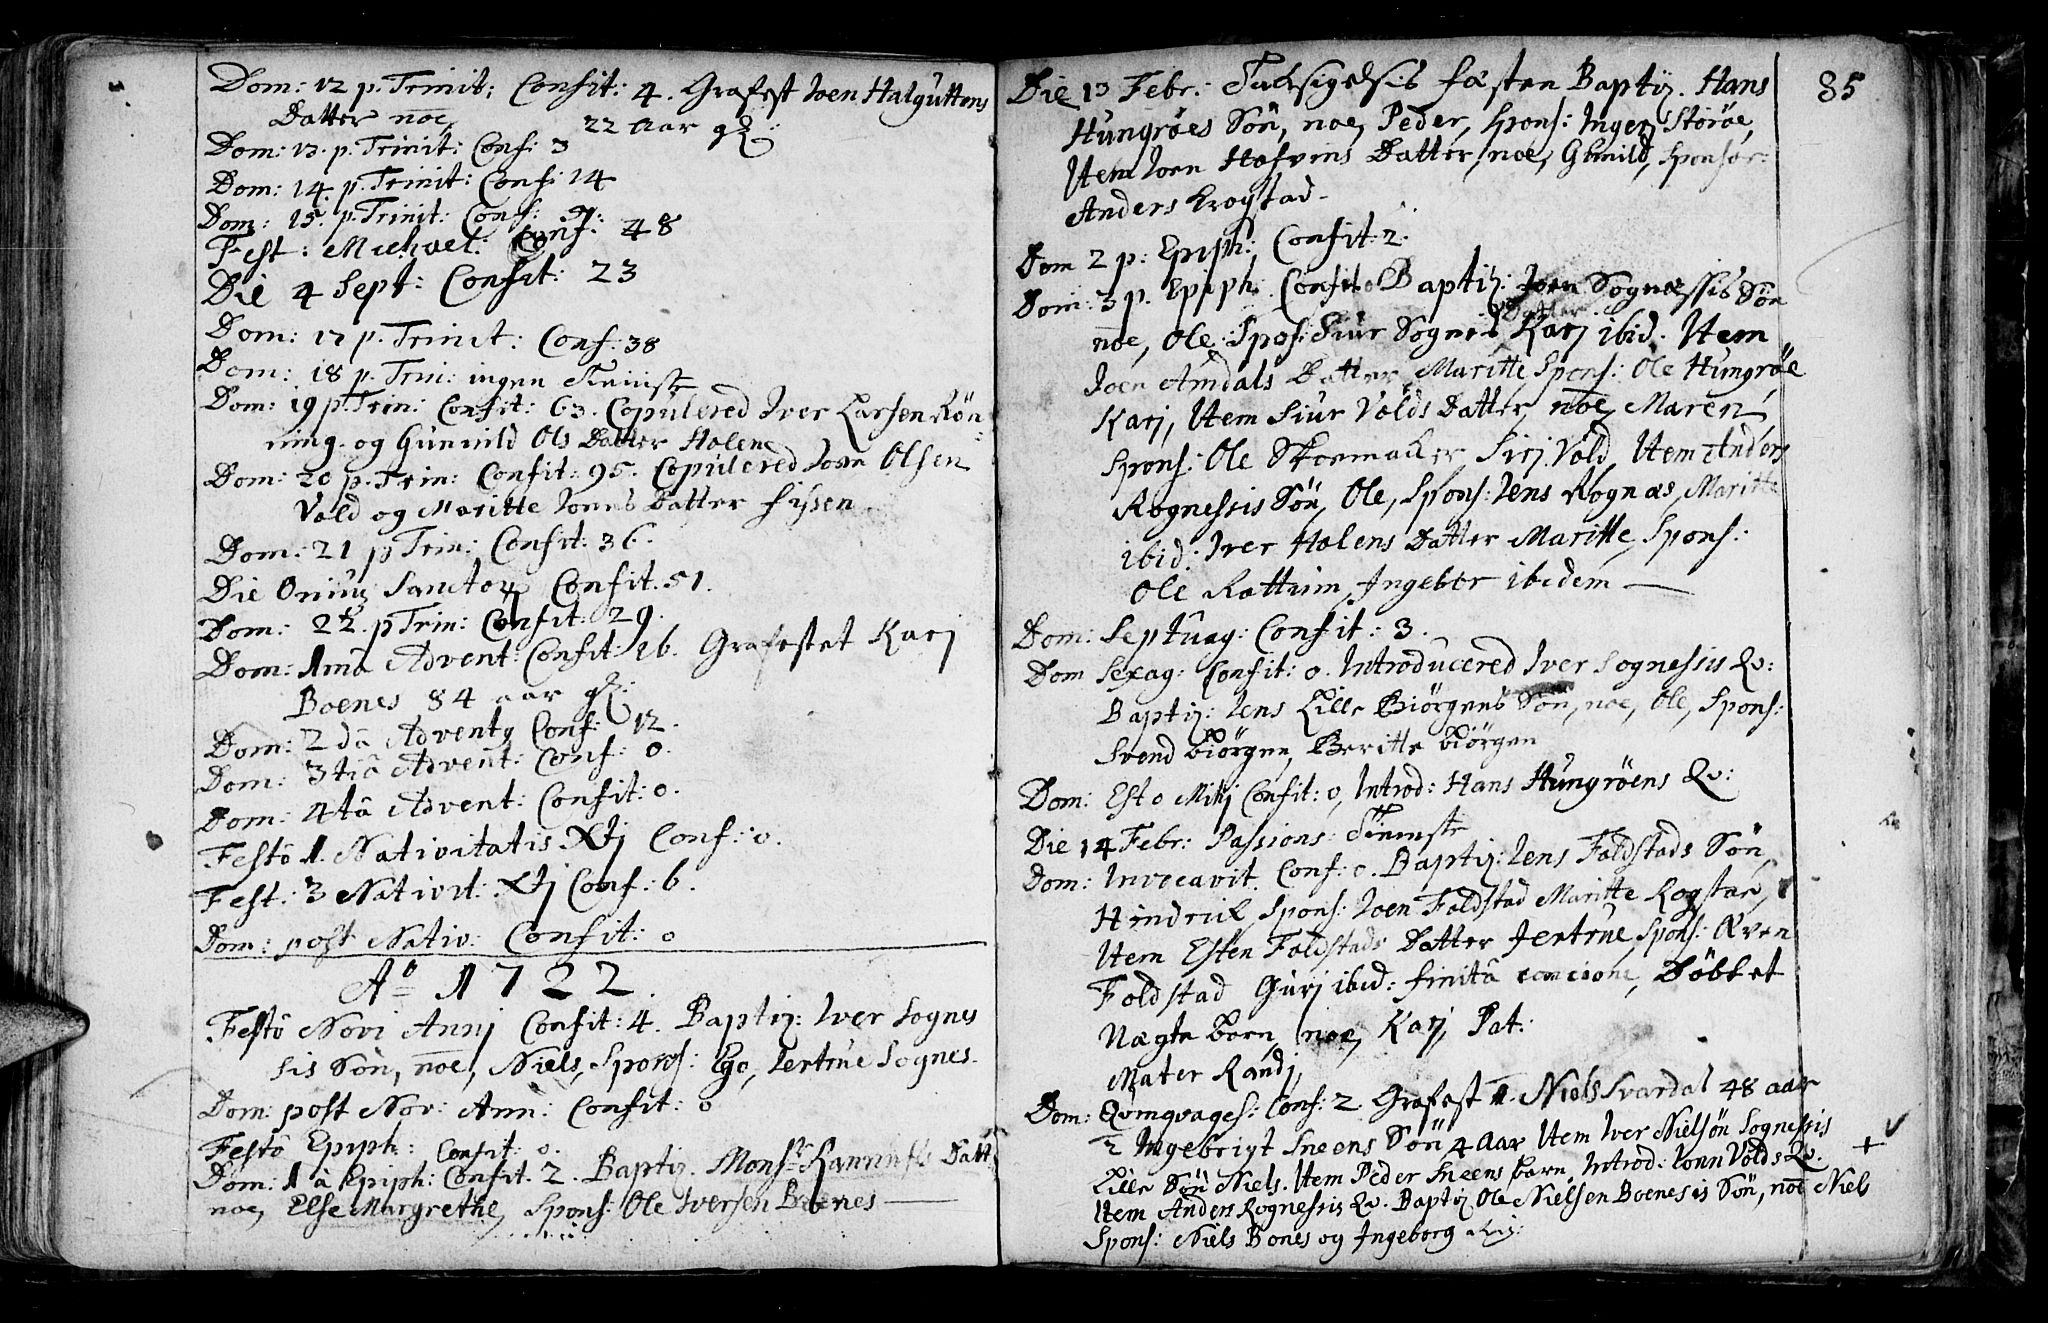 Dom: 12 p. Trinit: Confit: 4. Grafest Joen Halguttens
Datter noe, 22 aar gl:
Dom: 13. p. Trinit: Conf: 3
Dom: 14. p. Trinit: Conf: 14
Dom: 15. p. Trinit: Conf: 9:
Fest: Michael: Conf: 48
Die 4 Sept: Confit: 23
Dom: 17 p. Trinit: Conf: 38
Dom: 18 p. Trin: ingen Tieniste
Dom: 19 p. Trin: Confit: 63. Copulered Iver Larsen Rön
ning og Gunnild Ols Datter Holem
Dom: 20 p. Trin: Confit: 95. Copulered Joen Olsen
Vold og Maritte Jones Datter
Dom: 21 p Trin: Confit: 36.
Die Oniu Sanctor Confit: 51.
Dom: 22. p Trin: Confit: 29.
Dom: 1ma Advent: Confit: 26. Grafestet Karj
Boenes 84 aar gl:
Dom: 2da Advent Conf: 12.
Dom: 3tia Advent: Conf: 0.
Dom: 4ta Advent: Confit: 0.
Festo 1. Nativitatis Xtj Conf: 0.
Fest: 3 Nativit: Xtj Conf: 6.
Dom: post Nativ: Confit: 0
Ao 1722
Festo Novi Annj Confit: 4. Baptiz: Iver Sognes
sis Søn, noe, Niels, Spons: Ego, Jertrue Sognes.
Dom: post Nov: Ann: Confit: 0
Festo Epiph: Confit: 0.
Dom: 1 a Epiph: Confit. 2. Baptiz. Monsr Datt
noe, Else Margrethe, Spons: Ole Iversen Boenes
85
Die 13 Febr: Tacksigelsis fæsten Baptiz. Hans
Hungröes Søn, noe, Peder, Spons: Inger Störöe,
Item Joen Hofvins Datter, noe, Gunild, Sponsor:
Anders Krogstad.
Dom 2 p: Epiph: Confit: 2.
Dom: 3 p. Epiph: Confit: 0 Baptiz: Joen Sognessis Søn
noe, Ole: Spos: Siur Sognes Datter Karj ibid. Item
Joen Amdals Datter Maritte, Spons: Ole Hungröe
Karj, Item Siur Volds Datter, noe, Maren,
Spons: Ole Skoemaker Sirj Vold, Item Anders
Rognessis Søn, Ole, Spons: Jens Rognæs, Maritte
ibid: Iver Holens Datter Maritte, Spons:
Ole Rættum, Ingebor ibidem
Dom: Septuag: Confit: 3.
Dom Sexag: Confit: 0. Introducered Iver Sognessis Qv:
Baptiz: Jens Lille Biörgens Søn, noe, Ole, Spons:
Svend Biörgen, Beritte Biörgen
Dom: Esto Mihj Confit: 0, Introd: Hans Hungröens Qv:
Die 14 Febr: Passions: Tieniste
Dom: Invocavit. Conf: 0. Baptiz: Jens Foldstads Søn,
Hindrick, Spons: Joen Foldstad Maritte Rogstad,
Item Esten Foldstads Datter Jertrue, Spons: Even
Foldstad Gurj ibid: finita concione, Döbbet
Nægte Barn, noe, Karj, Pat:
Mater Randj,
Dom: Qvinqvages: Conf: 2. Grafest 1. Niels Svardal 48 aar
2 Ingebrigt Sneens Søn 4 aar Item Iver Nielsøn Sognessis
Lille Søn Niels. Item Peder Sneens barn, Introd: Jonn Volds Qv.
Item Anders Rognessis Qv. Baptiz Ole Nielsen Boenesis Søn, noe Niels
Spons: Niels Bones og Ingeborg